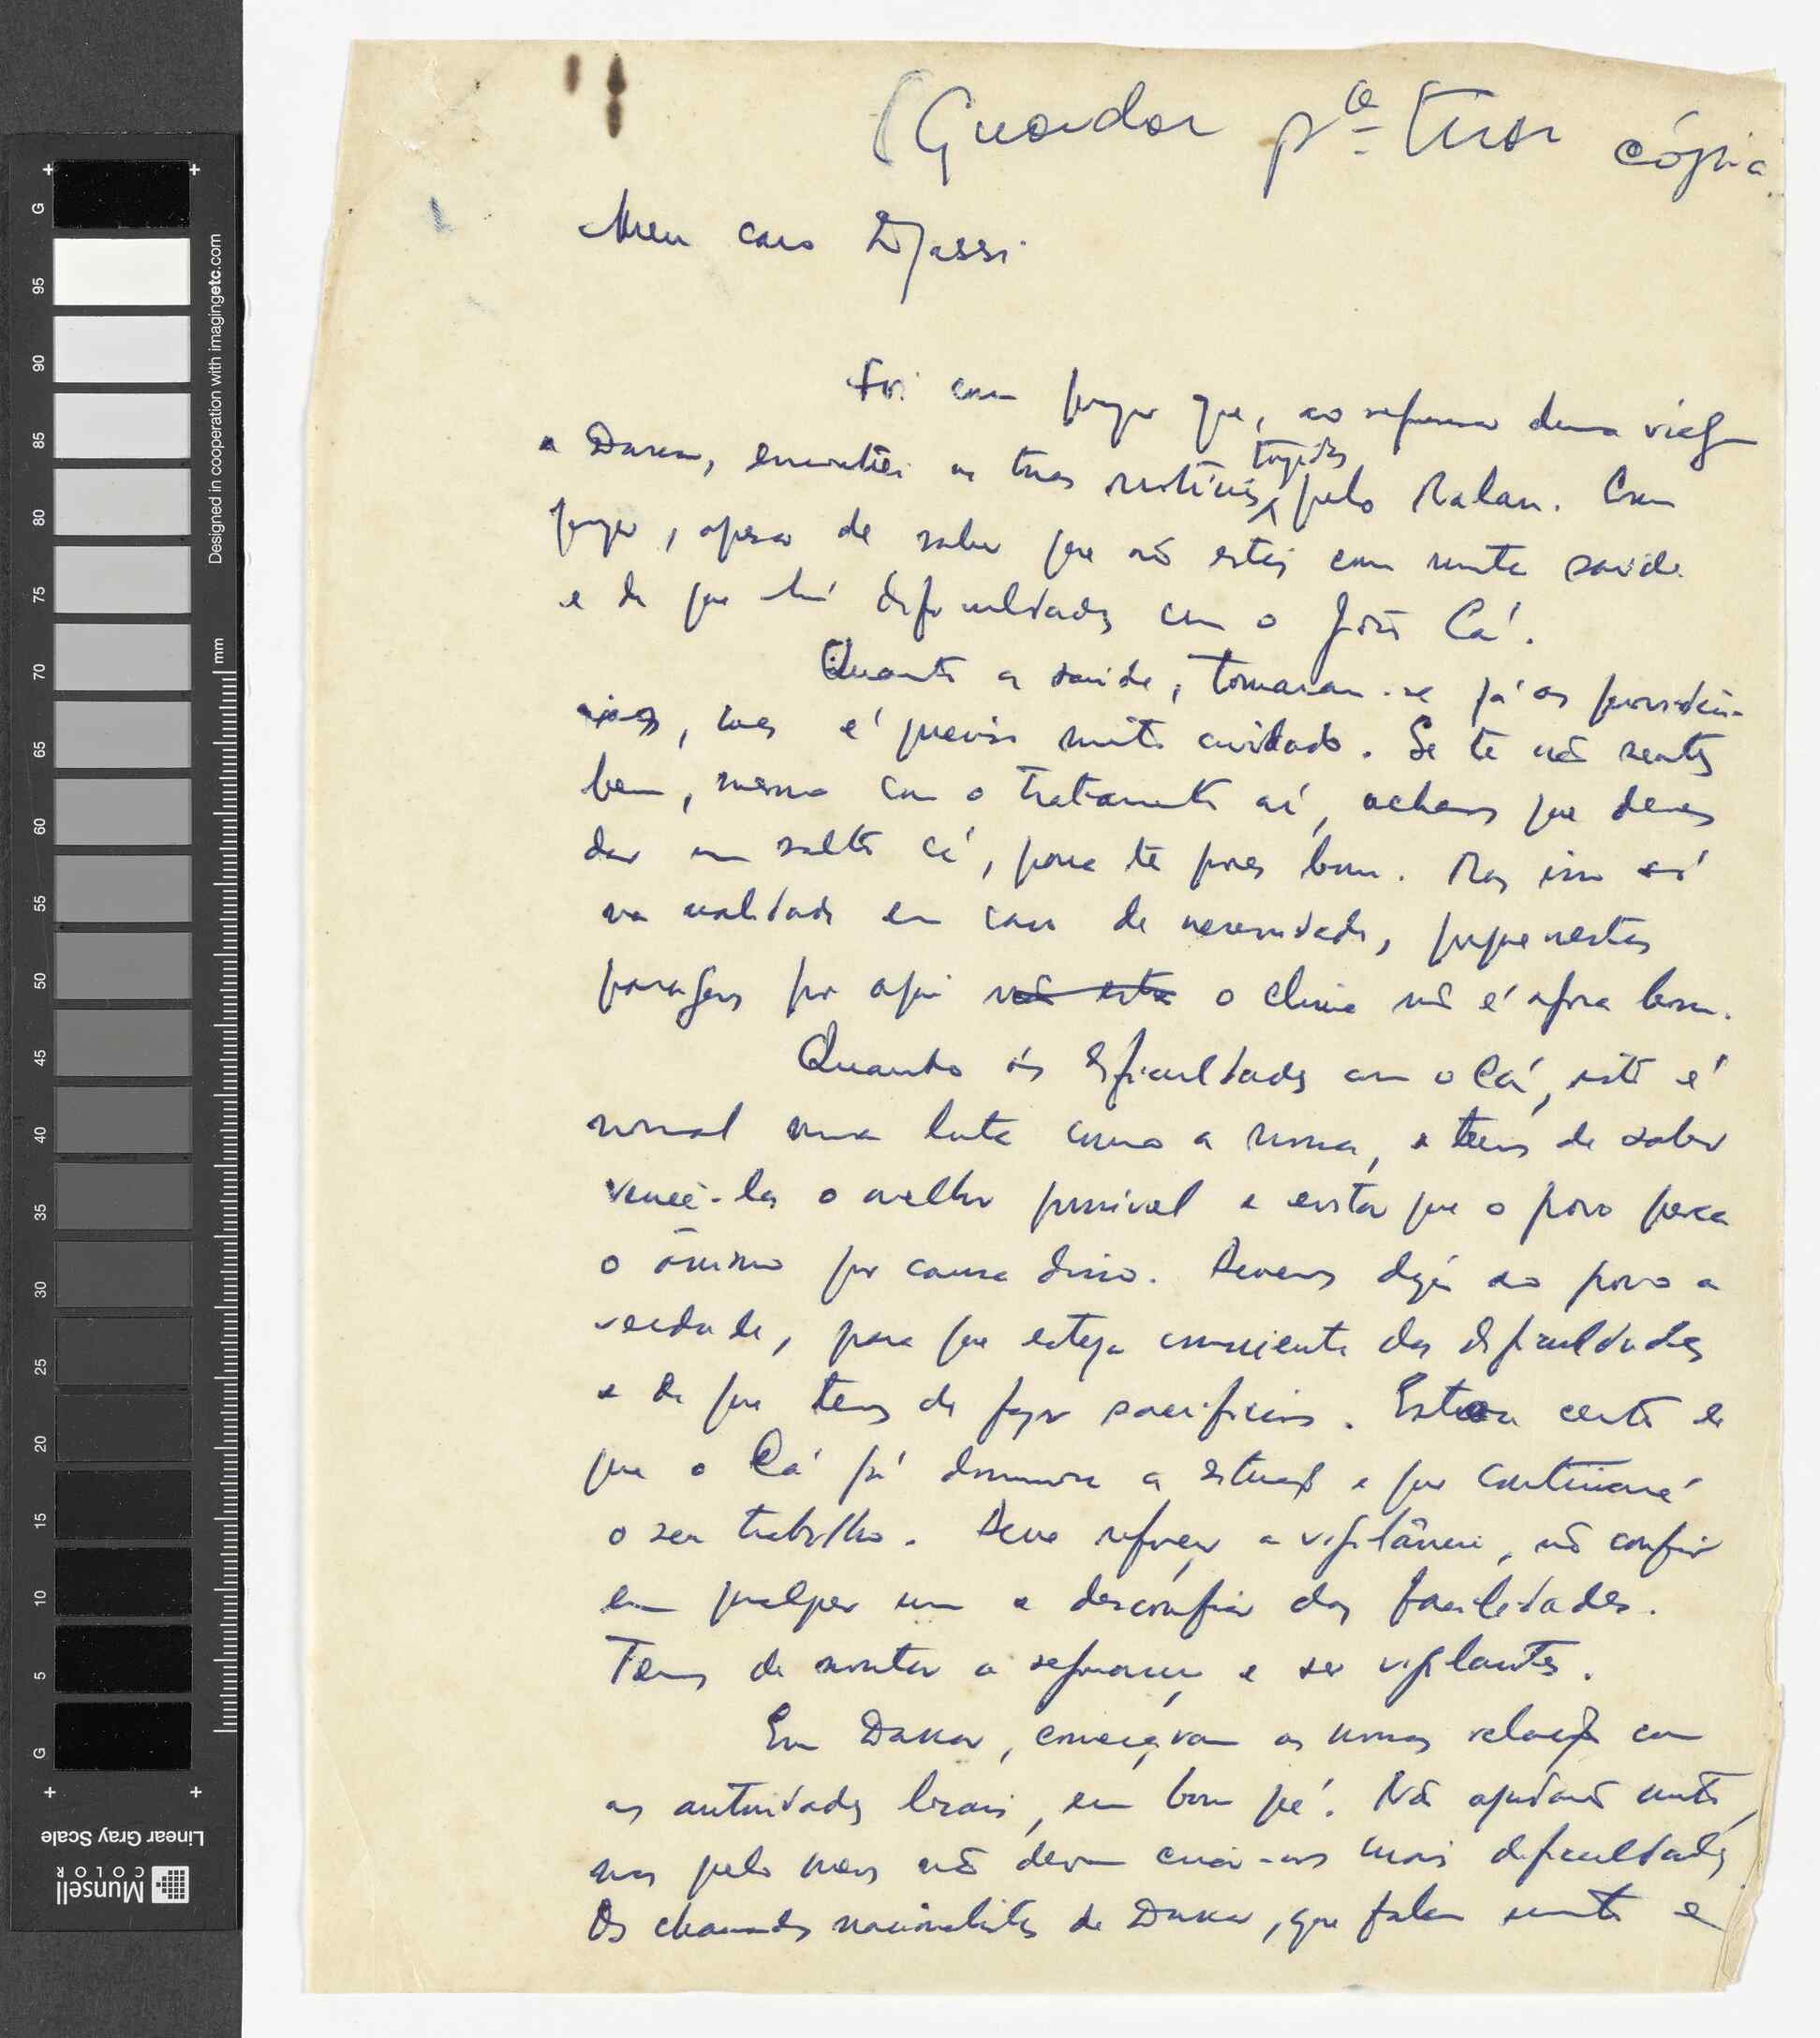 (Guardar pª tirar cópia
Meu caro Djassi
Foi com prazer que, ao regressar duma viagem
a Dakar, encontrei as tuas notícias trazidas pelo Malam. Com
prazer, apesar de saber que não estás com muita saúde
e de que há dificuldades com o João Cá.
Quanto a saúde, tomaram-se já as providên-
cias, mas é preciso muito cuidado. Se te não sentes
bem, mesmo com o tratamento aí, achamos que deves
dar um salto cá, para te pores bom. Mas isso só
na realidade em caso de necessidade, porque nestas
paragens por aqui não está o clima não é agora bom.
Quando às dificuldades com o Cá, isto é
normal numa luta como a nossa, e temos de saber
vencê-las o melhor possível e evitar que o povo perca
o ânimo por causa disso. Devemos dizer ao povo a
verdade, para que esteja consciente das dificuldades
e de que temos de fazer sacrifícios. Estou certo de
que o Cá já domina a situação e que continuará
o seu trabalho. Deve reforçar a vigilância, não confiar
em qualquer um e desconfiar das facilidades.
Temos de montar a segurança e ser vigilantes.
Em Dakar, começaram as nossas relações com
as autoridades locais, em bom pé. Não ajudarão muito,
mas pelo menos não devem criar-nos mais dificuldades
Os chamados nacionalistas de Dakar, que falam muito e
G
95
90
85
80
75
70
65
60
55
50
45
40
35
30
25
20
15
10
5
G
mm
Designed in cooperation with imagingetc.com
Munsell
COLOR
Linear Gray Scale